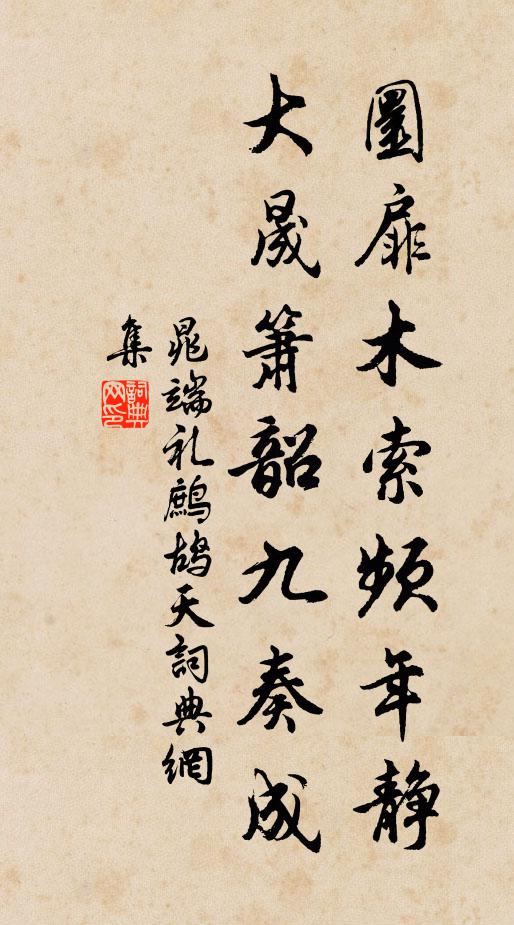 圜扉木索頻年静
大晟簫韶九奏成
晁端礼鷓鴣天詞典網
集
詞典
网印